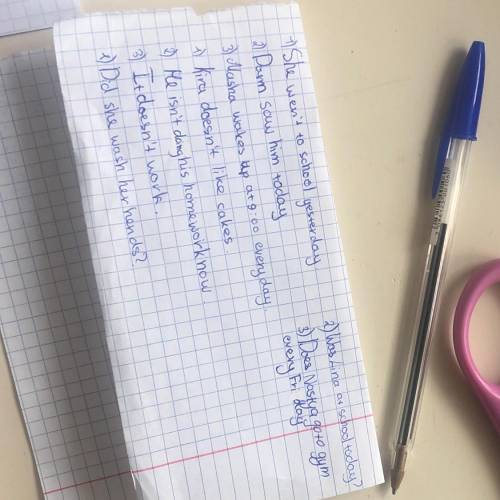 1) She went to school yesterday
2) Darm saw him today
3) Masha wakes up at 9.00 everyday.
1) Kira doesn't like cakes.
2) He isn't doing his homework now
3) It doesn't work.
1) Did she wash her hands?
2) Was Lina at school today?
3) Does Nastya go to gym
every Friday